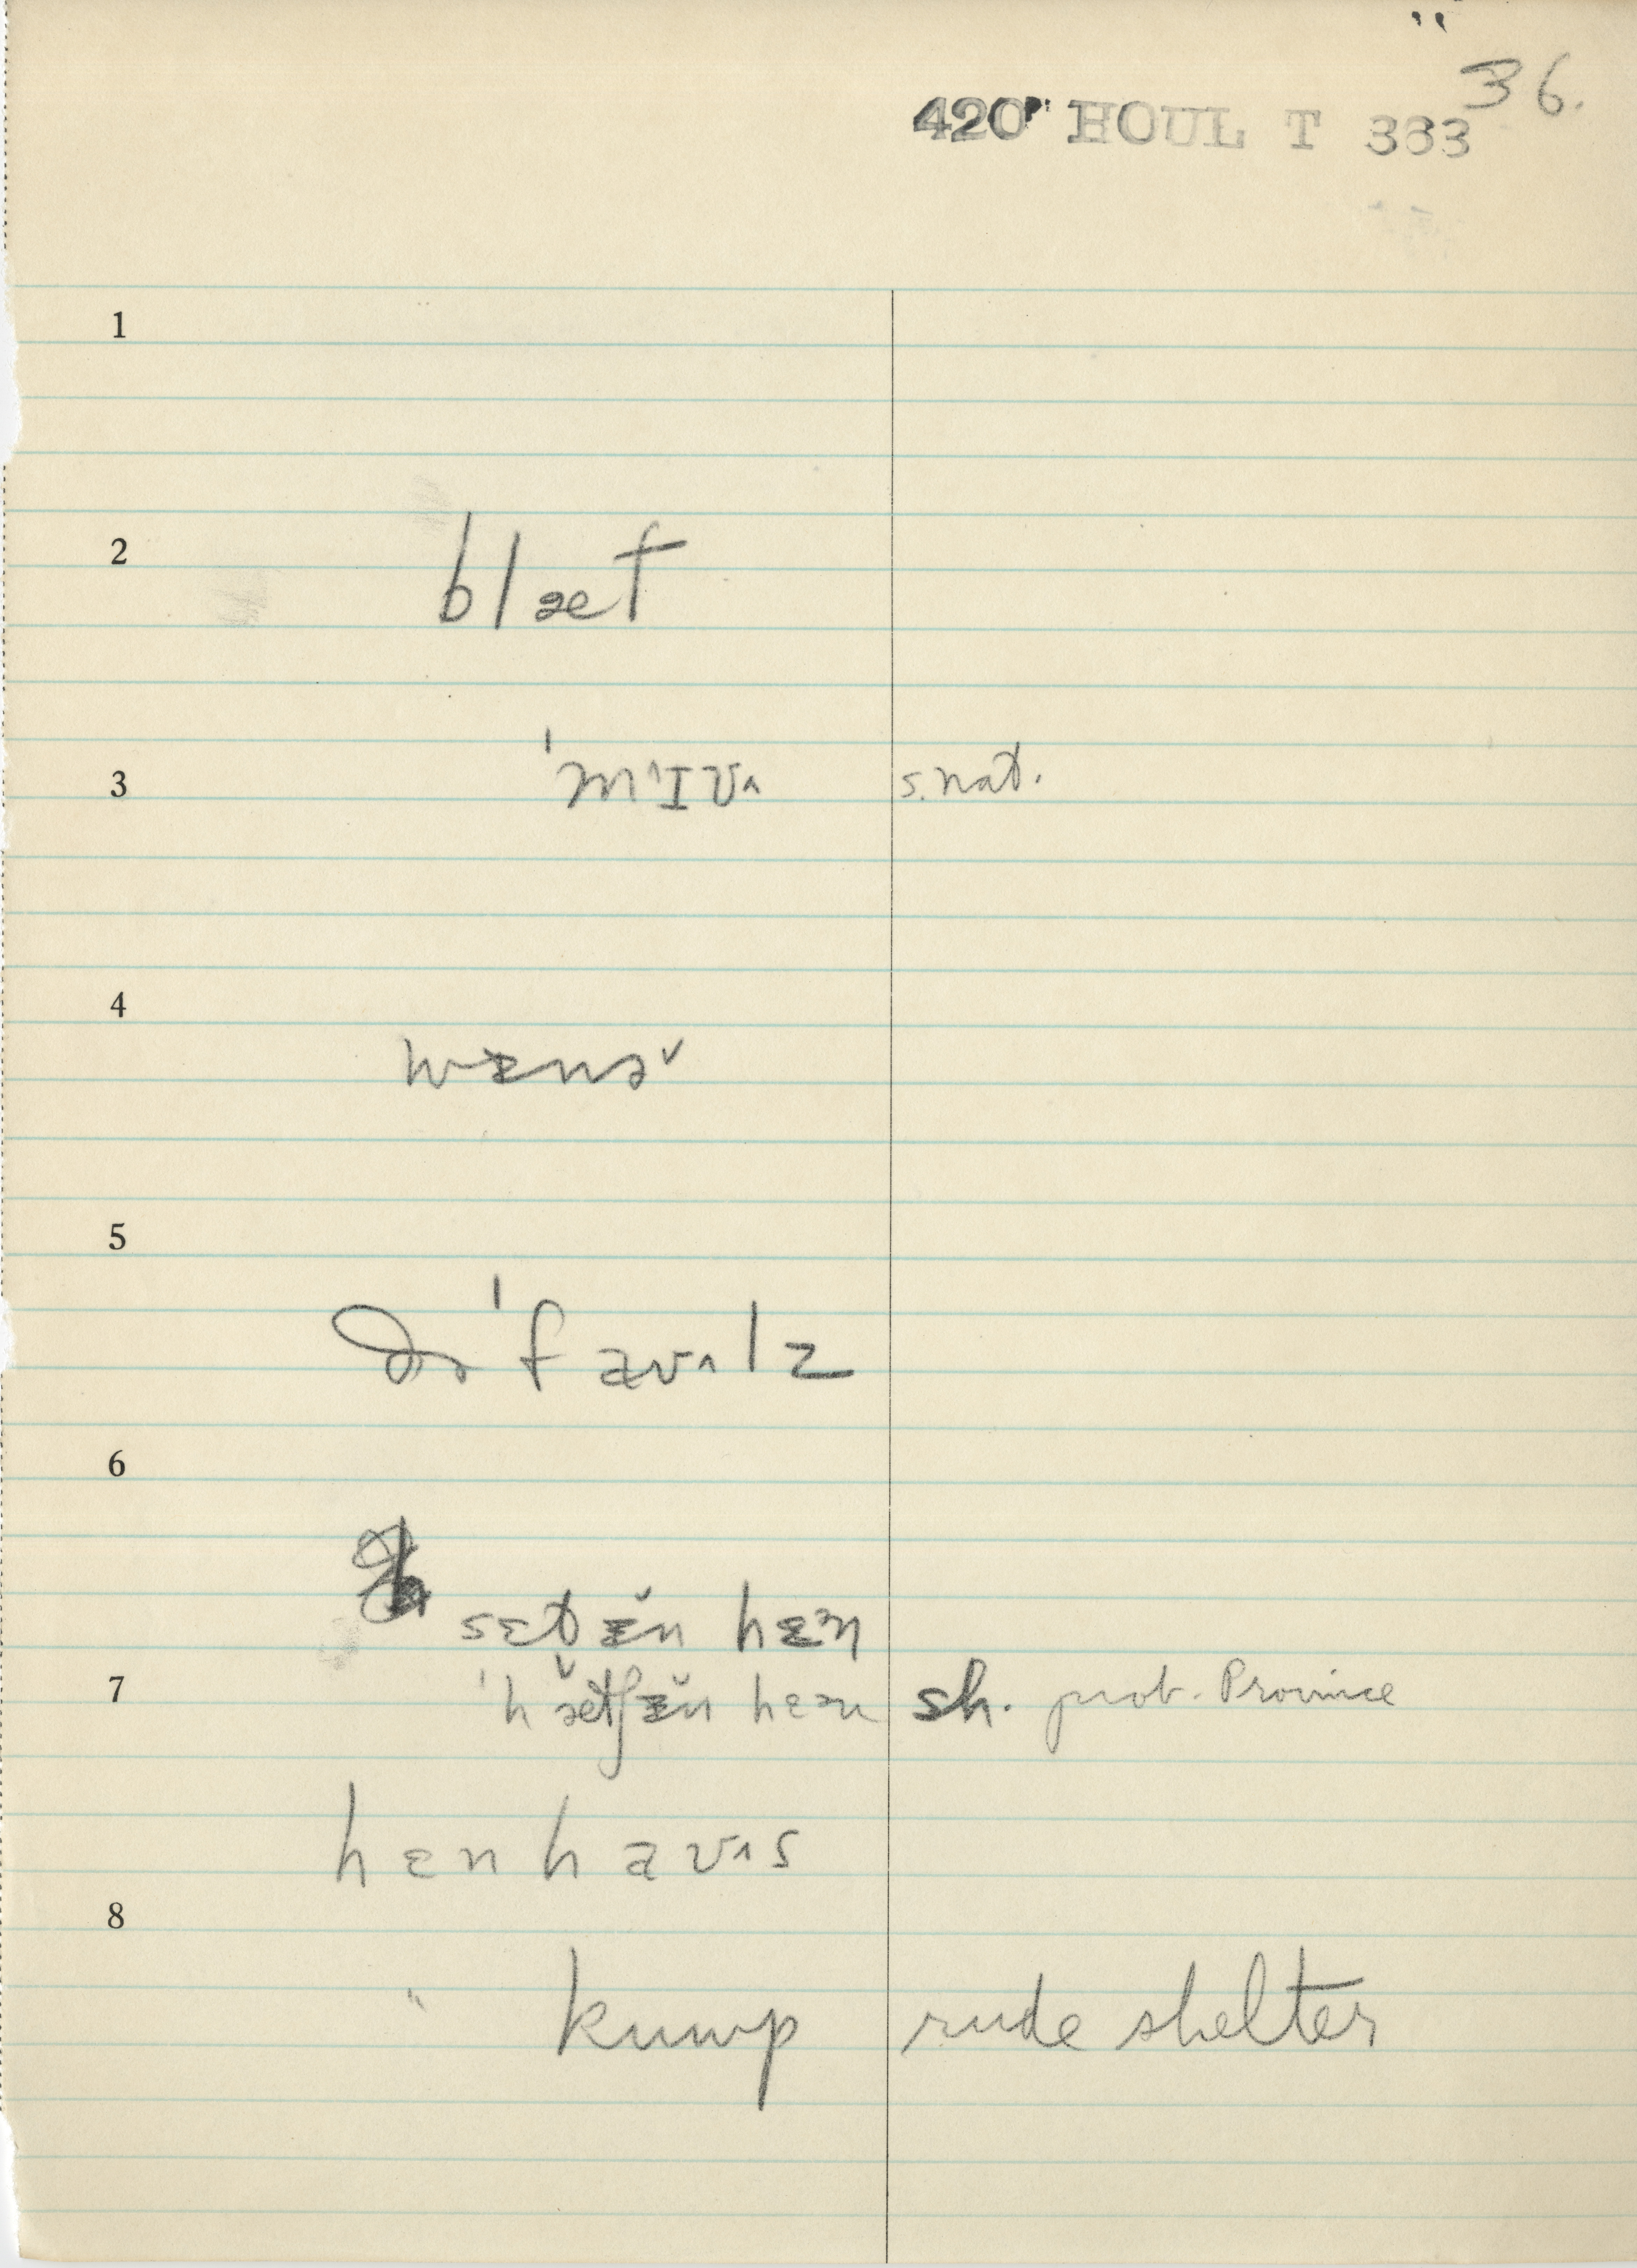 36.
420 HOUL T 363
1
2
blæt
3
'mᶦɪᴜ^ s. nat.
4
wɛnə̆
5
ðə 'f aᴜ^lz
6
sɛt ɛ̆n hɛᵊn
7 'h ə̆etʃɛ̆n hɛᵊn sh. prob. Province
hɛn haᴜ^s
8
" kump rude shelter